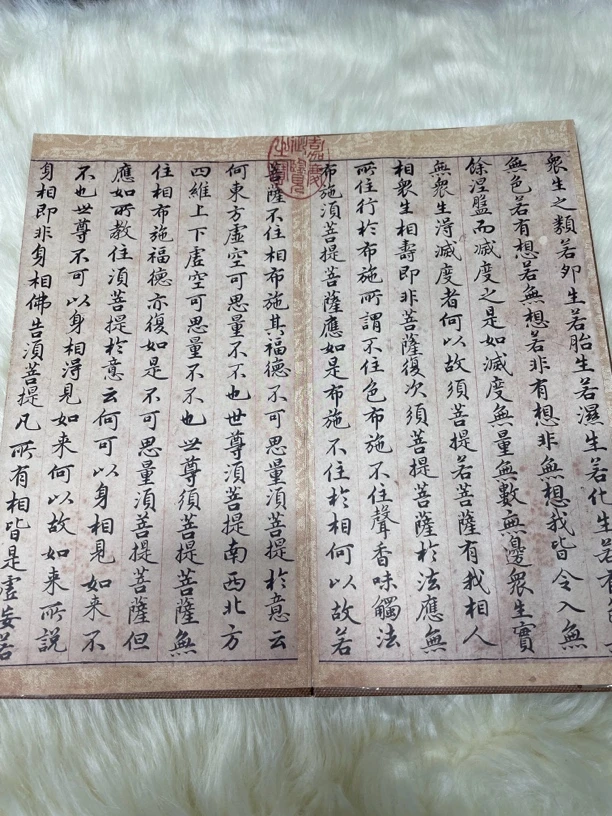 衆生之類若夘生若胎生若濕生若化生
無色若有想若無想若非有想非無想我皆令入無
餘涅盤而滅度之是如滅度無量無數無邊衆生實
無衆生得滅度者何以故須菩提若菩薩有我相人
相衆生相壽即非菩薩復次須菩提菩薩於法應無
所住行於布施所謂不住色布施不住聲香味觸法
布施須菩提菩薩應如是布施不住於相何以故若
菩薩不住相布施其福德不可思量須菩提於意云
何東方虛空可思量不不也世尊須菩提南西北方
四維上下虛空可思量不不也世尊須菩提菩薩無
住相布施福德亦復如是不可思量須菩提菩薩但
應如所教住須菩提於意云何可以身相見如来不
不也世尊不可以身相得見如来何以故如来所說
身相即非身相佛告須菩提凡所有相皆是虛妄若
嘉慶御覽之寶